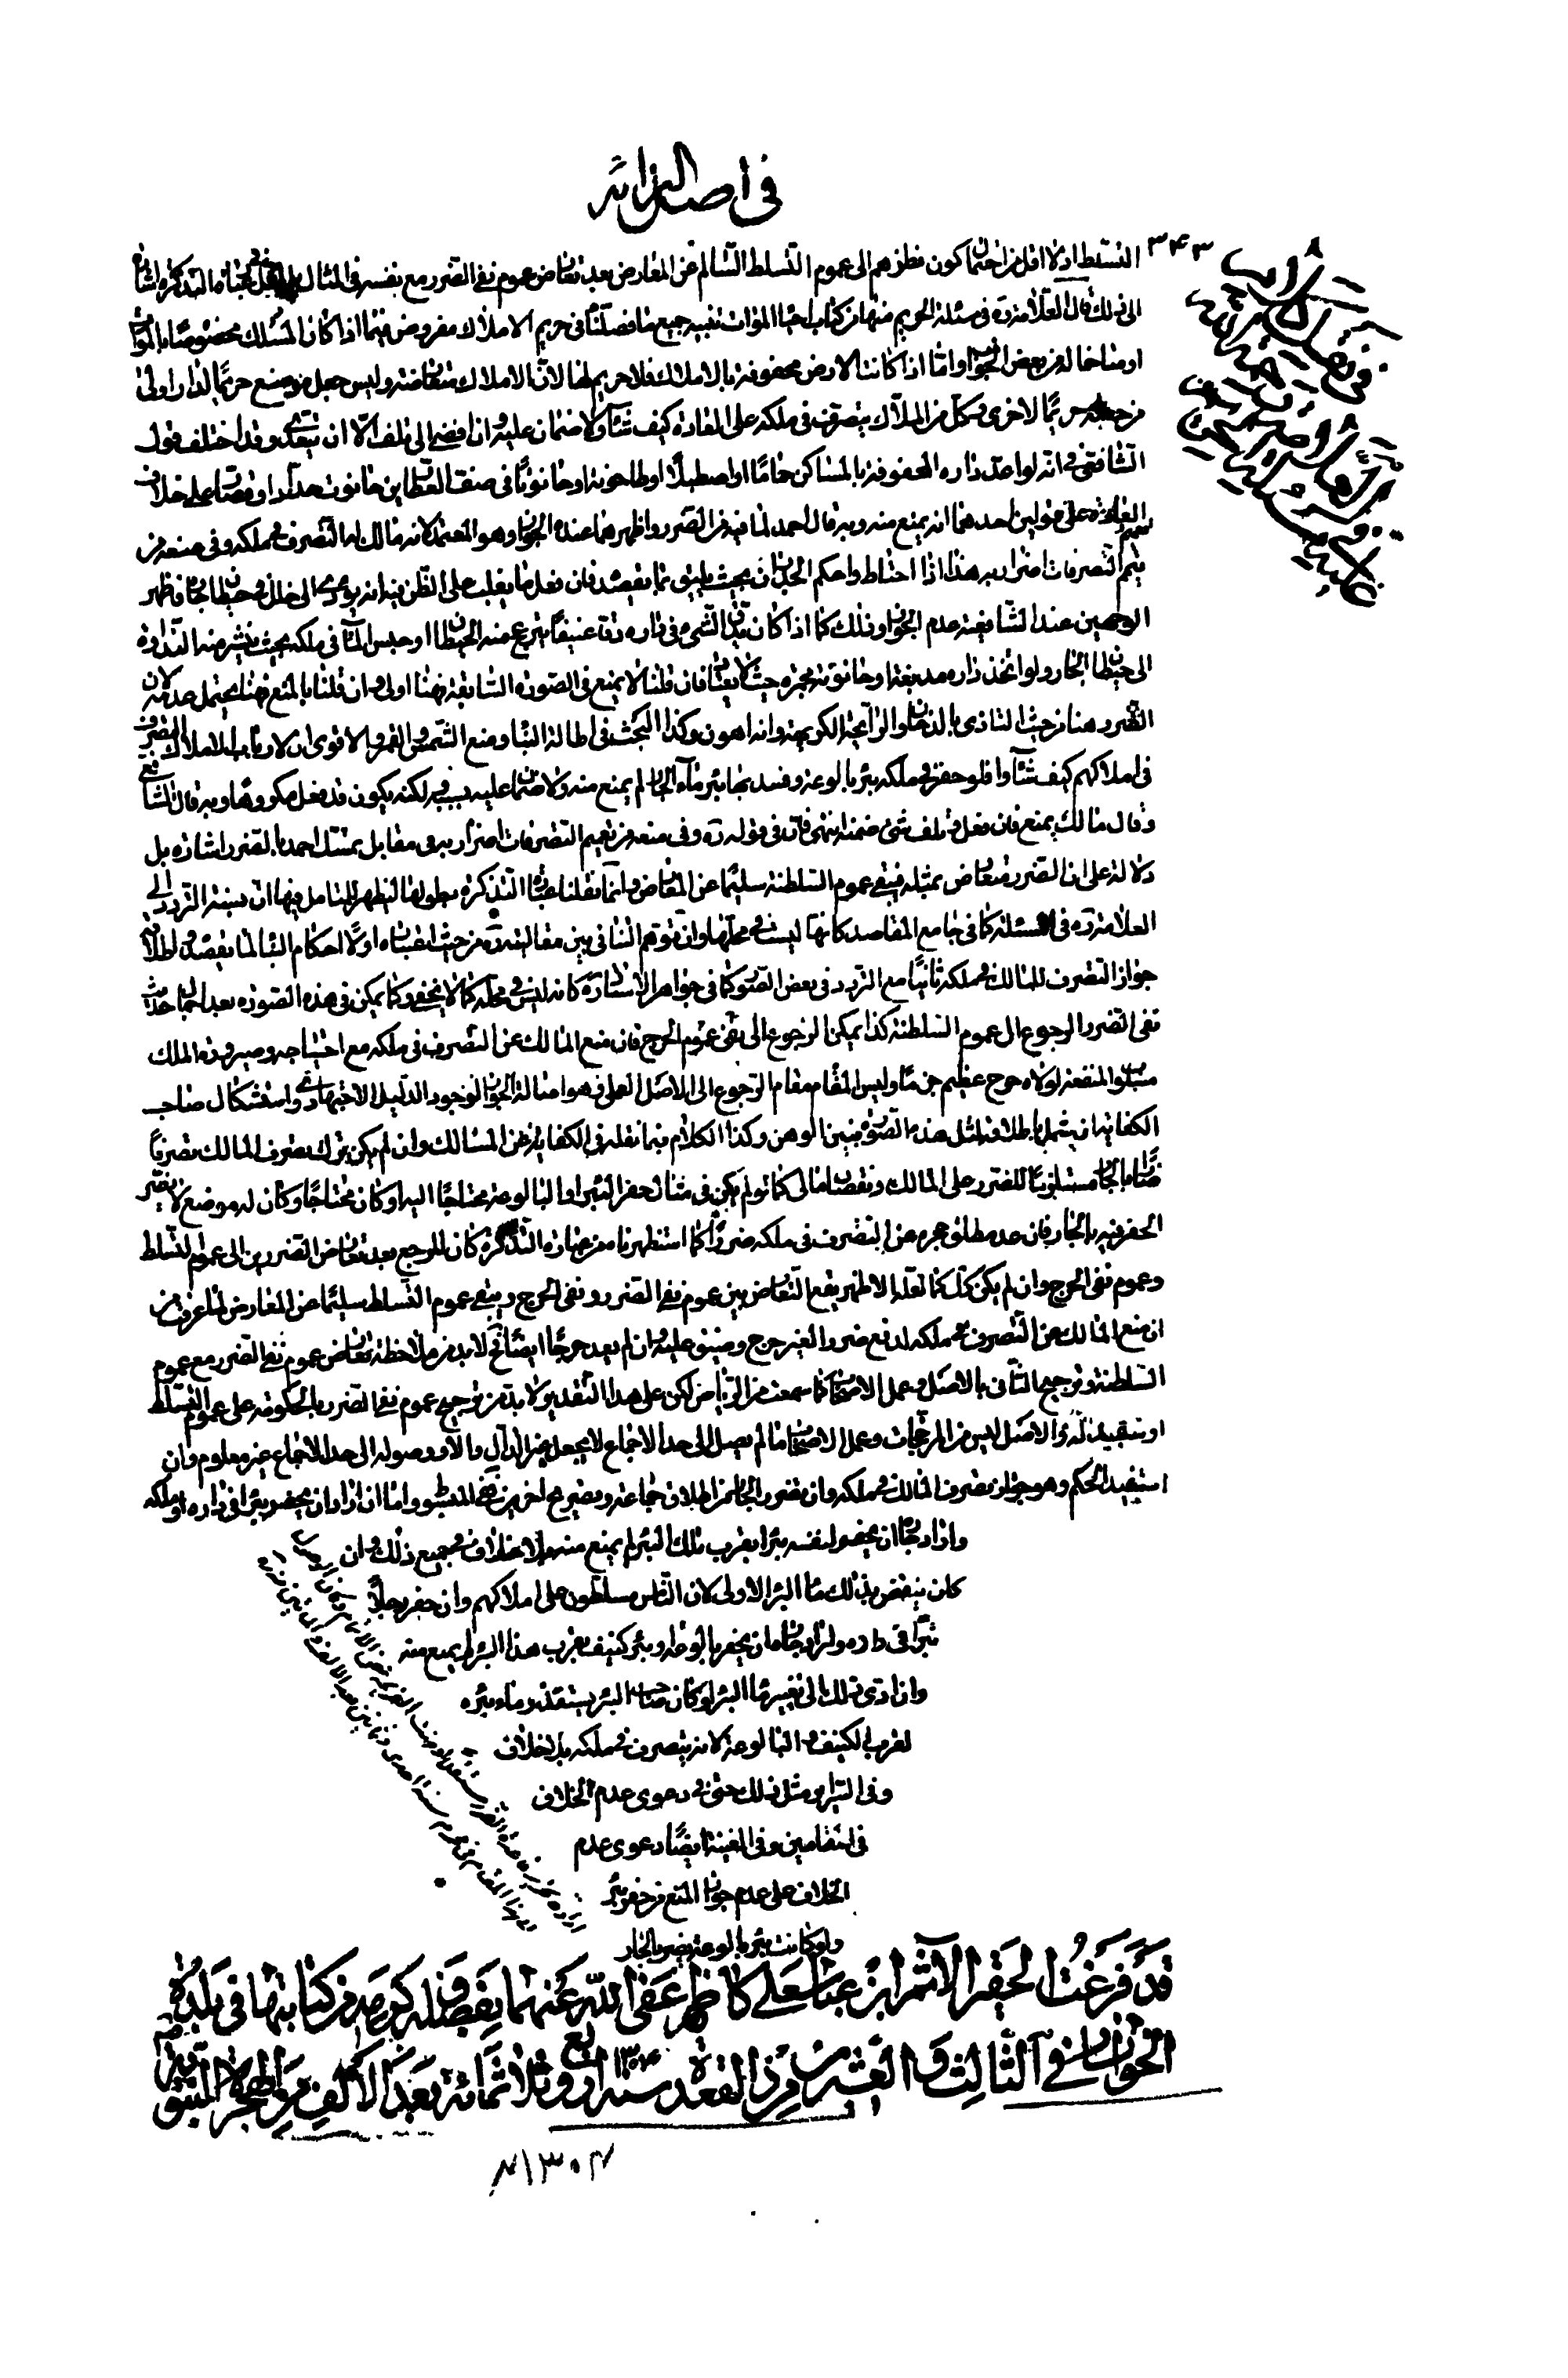 في اصالة البرائة
٣٤٣
التسلط اذ لا اقل من احتمال كون نظرهم الى عموم التسلط السالم عن المعارض بعد تعارض عموم نفي الضرر مع نفسه في المثال عبارة التذكرة اشارة
الى ذلك قال العلامة ره في مسئلة الحريم منها من كتاب احياء الموات تنبيه جميع ما فصلناه في حريم الاملاك مفروض فيما اذا كان الملك محفوفا بالموات
او متاخما له من بعض الجوانب واما اذا كانت الارض محفوفة بالاملاك فلا حريم لها لان الاملاك متعارضة وليس جعل موضع حريما لدار اولى
من جعله حريما لاخرى وكل من الملاك يتصرف في ملكه على العادة كيف شاء ولا ضمان عليه وان افضى الى تلف الا ان يتعدى وقد اختلف قول
الشافعي في انه لو اعد داره المحفوفة بالمساكن حماما او اصطبلا او طاحونة او حانوتا في صف العطارين حانوت حداد او قصار على خلاف
العادة على قولين احدهما انه يمنع منه وبه قال احمد لما فيه من الضرر واظهرهما عنده الجواز وهو المعتمد لانه مالك له التصرف في ملكه وفي منعه من
تعميم التصرفات اضرار به هذا اذا احتاط واحكم الجدران بحيث يليق بما يقصده فان فعل ما يغلب على الظن فيه انه يؤدي الى خلل في حيطان الجار فاظهر
الوجهين عند الشافعية عدم الجواز وذلك كما اذا كان يدق الشيء في داره دقا عنيفا يتزعزع منه الحيطان او حبس الماء في ملكه بحيث ينتشر منه النداوة
الى حيطان الجار ولو اتخذ داره مدبغة او حانوته مخبزة حيث لا يعتاد فان قلنا لا يمنع في الصورة السابقة فهنا اولى وان قلنا بالمنع فهنا يحتمل عدمه لان
الضرر هنا من حيث التاذي بالدخان والرائحة الكريهة وانه اهون وكذا البحث في اطالة البناء ومنع الشمس والقمر والاقوى ان لارباب الاملاك التصرف
في املاكهم كيف شاؤا فلو حفر في ملكه بئر بالوعة وفسد بها بئر ماء الجار لم يمنع منه ولا ضمان عليه بسببه لكنه يكون قد فعل مكروها وبه قال الشافعي
وقال مالك يمنع فان فعل فتلف شيء ضمنه انتهى فان في قوله ره وفي منعه من تعميم التصرفات اضرار به في مقابل تمسك احمد بالضرر اشارة بل
دلالة على ان الضرر متعارض بمثله فيبقى عموم السلطنة سليما عن المعارض وانما نقلنا عبارة التذكرة بطولها ليظهر للمتامل فيها ان نسبة التردد الى
العلامة ره في المسئلة كما في جامع المقاصد كانها ليست في محلها وان توهم التنافي بين مقالته ره من حيث اعتباره اولا احكام البناء لما يقصد واطلاق
جواز التصرف للمالك في ملكه ثانيا مع التردد في بعض الصور كما في جواهر الاستاد ره كانه ليس في محله كما لا يخفى وكما يمكن في هذه الصورة بعد اجمال حديث
نفي الضرر الرجوع الى عموم السلطنة كذا يمكن الرجوع الى نفي عموم الحرج فان منع المالك عن التصرف في ملكه مع احتياجه وصيرورة الملك
مسلوب المنفعة لولاه حرج عظيم جزما وليس المقام مقام الرجوع الى الاصل العملي وهو اصالة الجواز لوجود الدليل الاجتهادي واستشكال صاحب
الكفاية ان يشمل باطلاقه لمثل هذه الصورة فبين الوهن وكذا الكلام فيما نقله في الكفاية من المسالك وان لم يكن ترك تصرف المالك تصرفا
ضارا بالجار مستلزما للضرر على المالك ونقصان مالي كما لو لم يكن في مثال حفر البئر او البالوعة محتاجا اليه او كان محتاجا وكان له موضع لا يتضرر
الحفر فيه بالجار فان عد مطلق حجره عن التصرف في ملكه ضررا كما استظهرناه من عبارة التذكرة كان المرجع بعد تعارض الضررين الى عموم التسلط
وعموم نفي الحرج وان لم يكن كك كما لعله الاظهر يقع التعارض بين عموم نفي الضرر ونفي الحرج ويبقى عموم التسلط سليما عن المعارض لما عرفت من
ان منع المالك عن التصرف في ملكه لدفع ضرر الغير حرج وضيق عليه وان لم يعد حرجا ايضا فح لا بد من ملاحظة تعارض عموم نفي الضرر مع عموم
السلطنة وترجيح الثاني بالاصل وعمل الاصحاب كما سمعت من الرياض لكن على هذا التقدير لا بد من ترجيح عموم نفي الضرر بالحكومة على عموم التسلط
او بتقييد له والاصل ليس من المرجحات وعمل الاصحاب ما لم يصل الى حد الاجماع لا يجعل غير الدال دالا ووصوله الى حد الاجماع غير معلوم وان
استفيد الحكم وهو جواز تصرف المالك في ملكه وان تضرر الجار من اطلاق جماعة وتصريح اخرين ففي المبسوط واما ان اراد ان يحفر بئرا في داره او ملكه
واراد جاره ان يحفر لنفسه بئرا بقرب تلك البئر لم يمنع منه بلا خلاف في جميع ذلك وان
كان ينقص بذلك ماء البئر الاولى لان الناس مسلطون على املاكهم وان حفر رجلا
بئرا في داره واراد جاره ان يحفر بالوعة او بئر كنيف بقرب هذا البئر لم يمنع منه
وان ادى ذلك الى تغيير ماء البئر او كان صاحب البئر يستقذر ماء بئره
لقرب الكنيف والبالوعة لانه يتصرف في ملكه بلا خلاف
وفي السرائر مثل ذلك حتى في دعوى عدم الخلاف
في المقامين وفي الغنية ايضا دعوى عدم
الخلاف على عدم جواز المنع من حفر بئر
ولو كانت بئر بالوعة يضر بالجار
قد فرغت الحقير الآثم ابن عباسعلي كاظم عفى الله عنهما بفضله وكرمه من كتابتها في بلدة
الخوانسار في الثالث والعشرين من ذالقعدة سنة ١٣٠٤ اربع وثلاثمائة بعد الالف من الهجرة النبوية
١٣٠٤